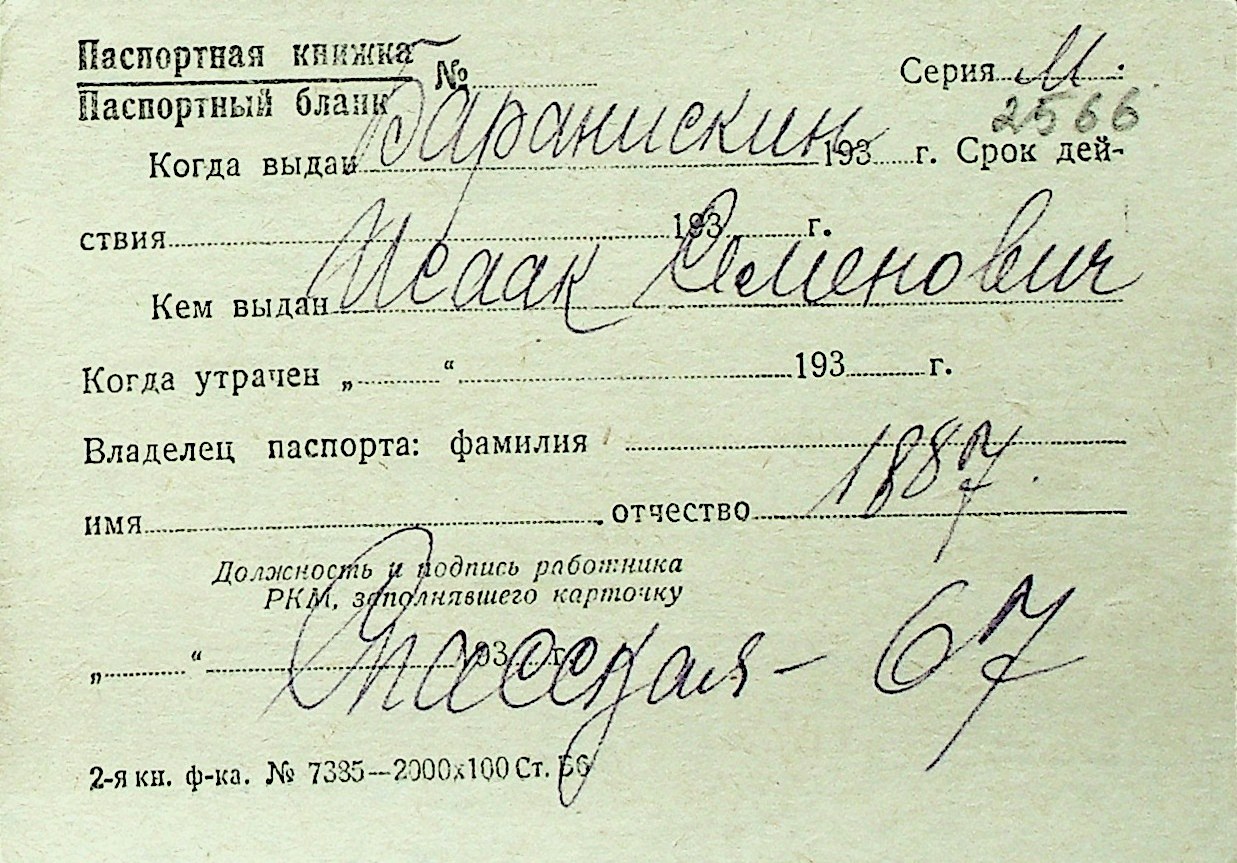 Паспортная книжка
Паспортный бланк
№ Серия М.
2566
Баранискин
Когда выдан 193 г. Срок дей-
ствия 193 г.
Исаак Семенович
Кем выдан
Когда утрачен „ “ 193 г.
Владелец паспорта: фамилия
1887.
имя отчество
Должность и подпись работника
РКМ, заполнявшего карточку
„ “ 193 г.
Спасская – 67
2-я кн. ф-ка. № 7335—2000х100 Ст. 56